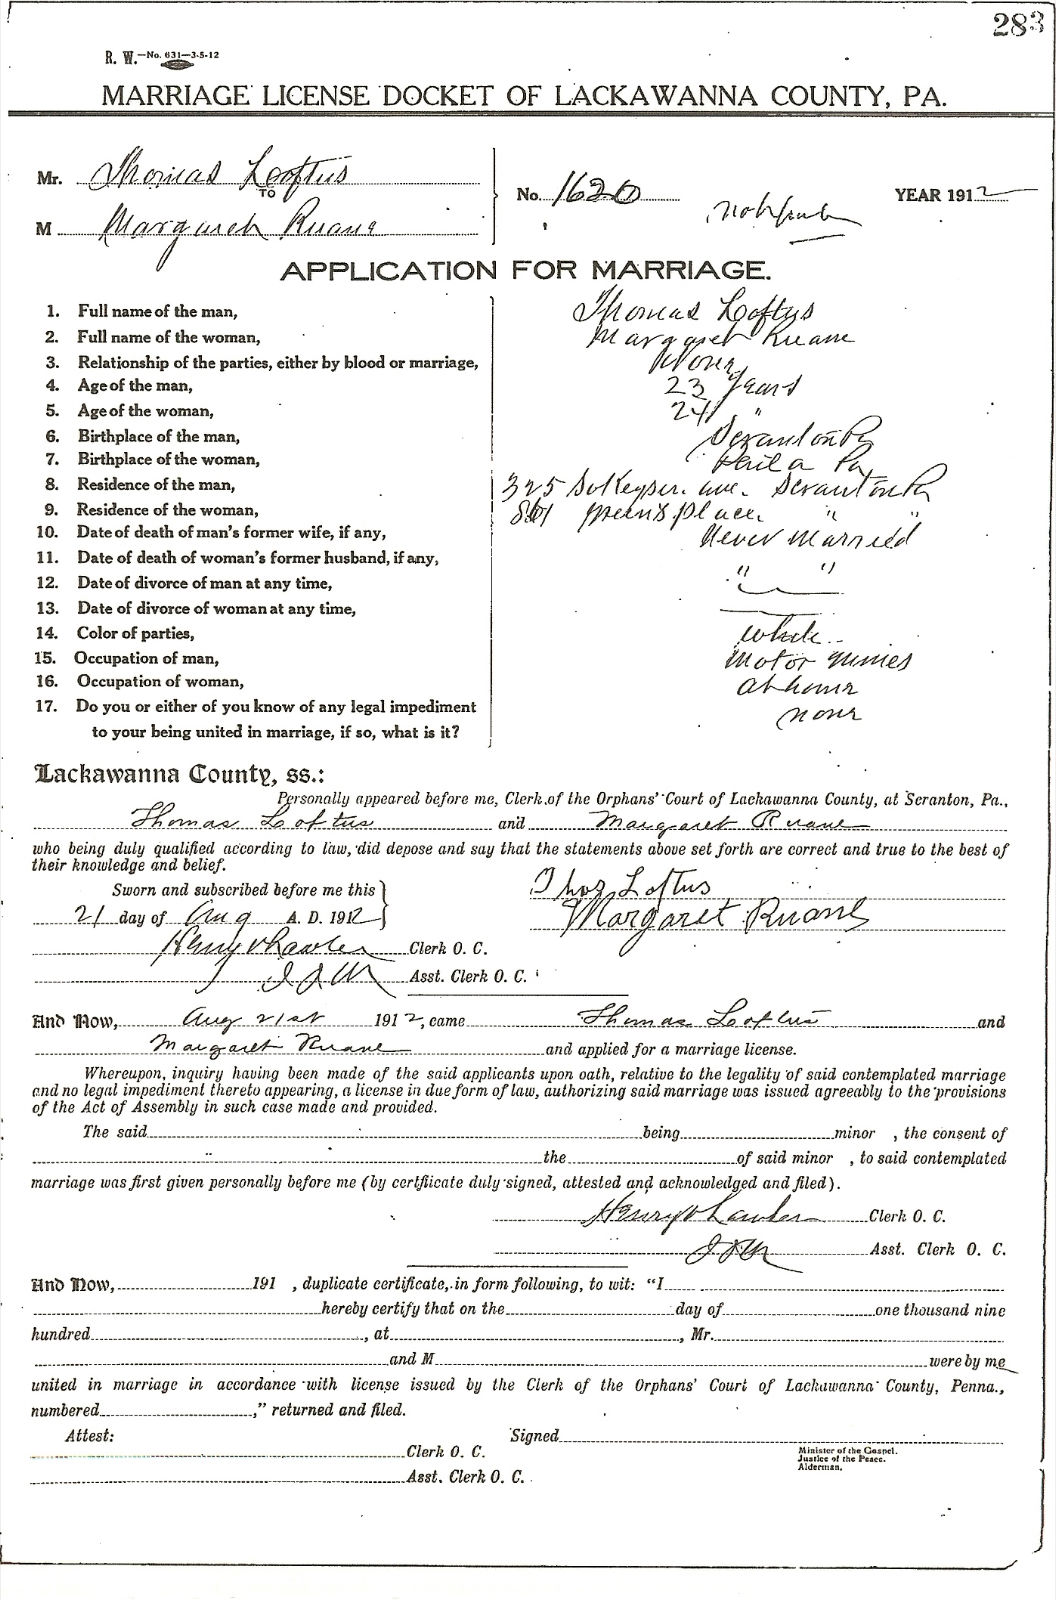 283
R. W.—No. 631—3-5-12
MARRIAGE LICENSE DOCKET OF LACKAWANNA COUNTY, PA.
Mr. Thomas Loftus
TO
M Margaret Ruane
No. 1620
YEAR 1912
APPLICATION FOR MARRIAGE.
1. Full name of the man, Thomas Loftus
2. Full name of the woman, Margaret Ruane
3. Relationship of the parties, either by blood or marriage, None
4. Age of the man, 23 years
5. Age of the woman, 24 "
6. Birthplace of the man, Scranton Pa
7. Birthplace of the woman, Phila Pa
8. Residence of the man, 325 So Keyser ave. Scranton Pa
9. Residence of the woman, Greens place " "
10. Date of death of man's former wife, if any, Never Married
11. Date of death of woman's former husband, if any, " "
12. Date of divorce of man at any time,
13. Date of divorce of woman at any time,
14. Color of parties, White
15. Occupation of man, Motor mines
16. Occupation of woman, At home
17. Do you or either of you know of any legal impediment none
to your being united in marriage, if so, what is it?
Lackawanna County, ss.:
Personally appeared before me, Clerk of the Orphans' Court of Lackawanna County, at Scranton, Pa.,
Thomas Loftus and Margaret Ruane
who being duly qualified according to law, did depose and say that the statements above set forth are correct and true to the best of
their knowledge and belief.
Sworn and subscribed before me this
21 day of Aug A. D. 1912
Thos Loftus
Margaret Ruane
Henry Clerk O. C.
Asst. Clerk O. C.
And Now, Aug 21st 1912, came Thomas Loftus and
Margaret Ruane and applied for a marriage license.
Whereupon, inquiry having been made of the said applicants upon oath, relative to the legality of said contemplated marriage
and no legal impediment thereto appearing, a license in due form of law, authorizing said marriage was issued agreeably to the provisions
of the Act of Assembly in such case made and provided.
The said being minor , the consent of
the of said minor , to said contemplated
marriage was first given personally before me (by certficate duly signed, attested and acknowledged and filed).
Henry Clerk O. C.
Asst. Clerk O. C.
And Now, 191 , duplicate certificate, in form following, to wit: "I
hereby certify that on the day of one thousand nine
hundred , at , Mr.
and M were by me
united in marriage in accordance with license issued by the Clerk of the Orphans' Court of Lackawanna County, Penna.,
numbered ," returned and filed.
Attest: Signed
Clerk O. C.
Minister of the Gospel.
Justice of the Peace.
Alderman.
Asst. Clerk O. C.